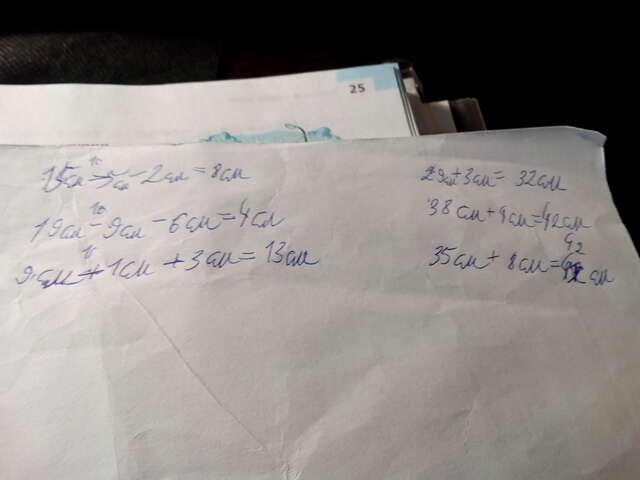 25
10
15см - 5см - 2см = 8см
29см + 3см = 32см
10
19см - 9см - 6см = 4см
38см + 4см = 42см
10
9см + 1см + 3см = 13см
42
35см + 8см = см